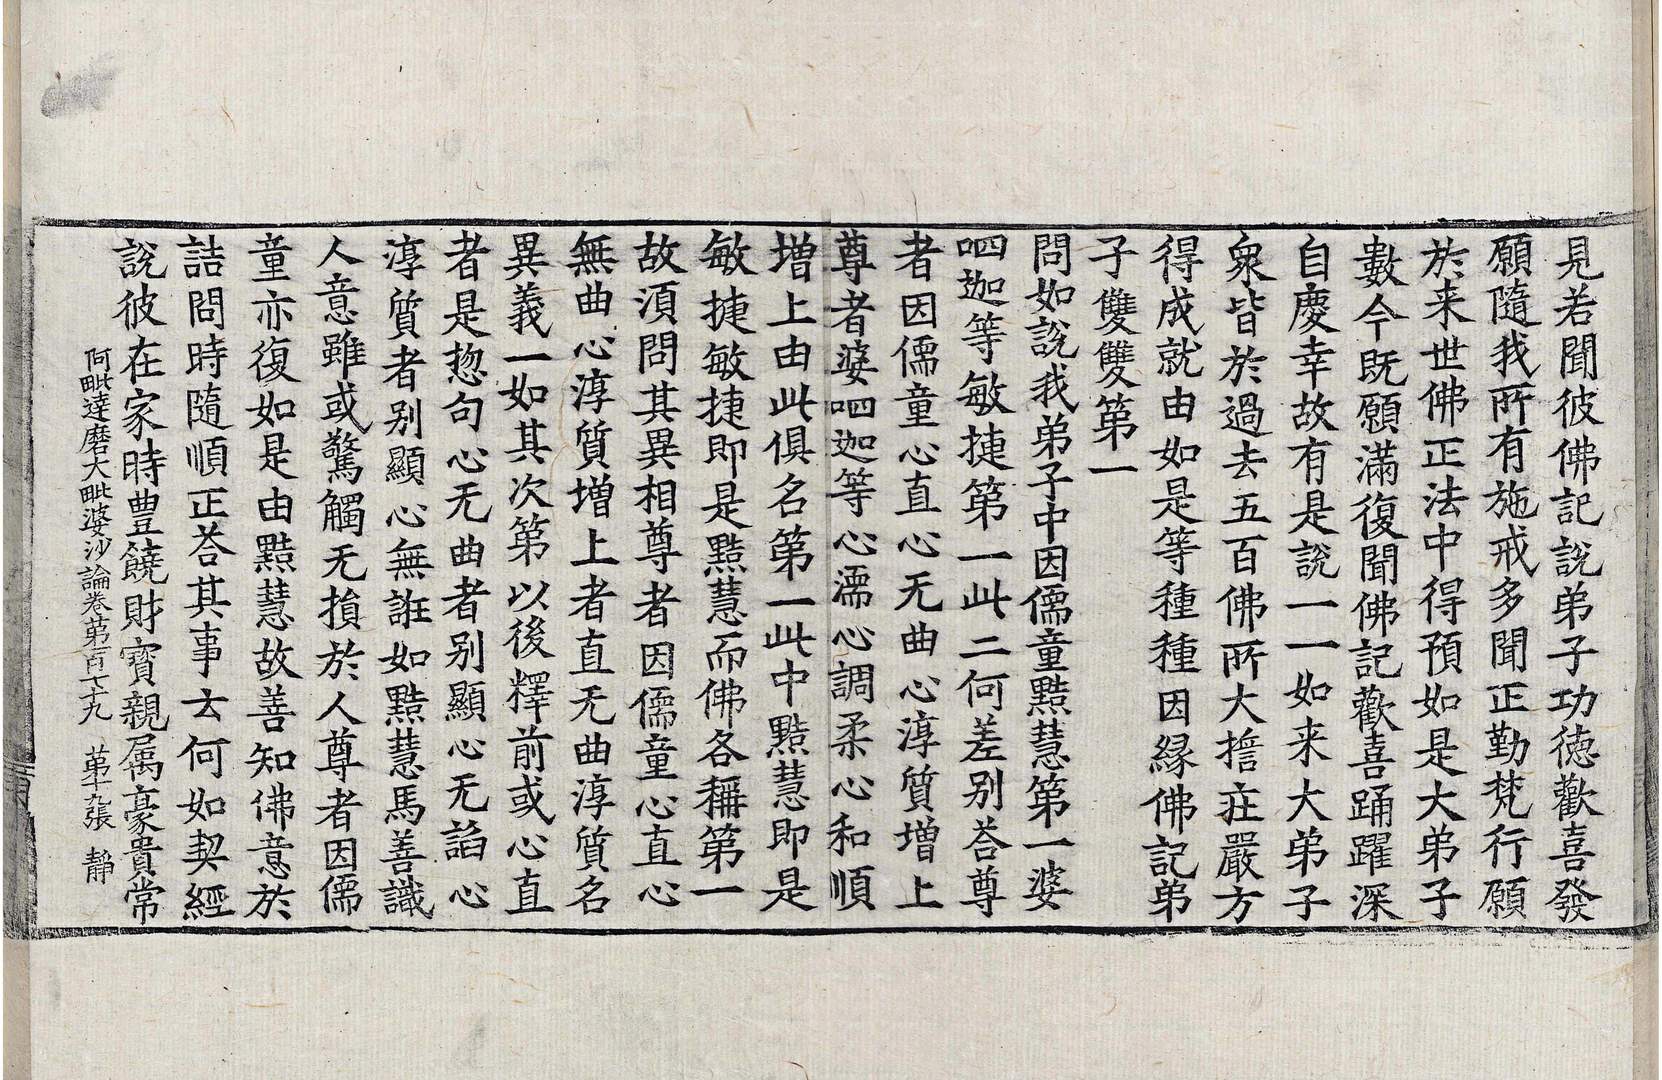 見若聞彼佛記說弟子功徳歡喜發
願隨我所有施戒多聞正勤梵行願
於来世佛正法中得預如是大弟子
數今既願滿復聞佛記歡喜踊躍深
自慶幸故有是說一一如来大弟子
衆皆於過去五百佛所大擔莊嚴方
得成就由如是等種種因縁佛記弟
子雙雙第一
問如說我弟子中因儒童黠慧第一婆
呬迦等敏捷第一此二何差别荅尊
者因儒童心直心无曲心淳質增上
尊者婆呬迦等心濡心調柔心和順
增上由此俱名第一此中黠慧即是
敏捷敏捷即是黠慧而佛各稱第一
故湏問其異相尊者因儒童心直心
無曲心淳質增上者直无曲淳質名
異義一如其次第以後釋前或心直
者是惣句心无曲者别顯心无諂心
淳質者别顯心無誑如黠慧馬善識
人意雖或驚觸无損於人尊者因儒
童亦復如是由黠慧故善知佛意於
詰問時隨順正荅其事云何如契經
說彼在家時豊饒財寳親属豪貴常
阿毗達磨大毗婆沙論卷第百七十九 第十九張 靜